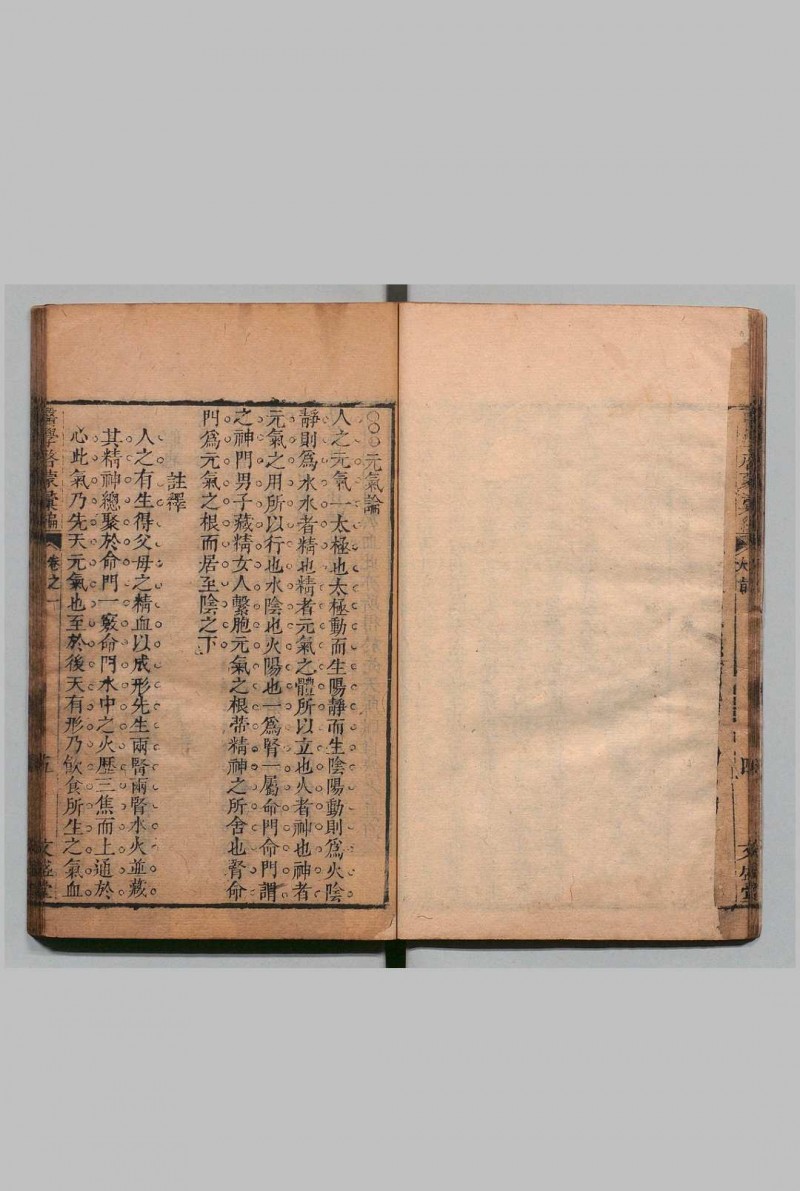 ○○○元氣論
人之元氣一太極也太極動而生陽靜而生陰陽動則為火陰
靜則為水水者精也精者元氣之體所以立也火者神也神者
元氣之用所以行也水陰也火陽也一為腎一屬命門命門謂
之神門男子藏精女人繫胞元氣之根蒂精神之所舍也腎命
門為元氣之根而居至陰之下
註釋
人之有生得父母之精血以成形先生兩腎兩腎水火並藏
其精神總聚於命門一竅命門水中之火歷三焦而上通於
心此氣乃先天元氣也至於後天有形乃飲食所生之氣血
醫學啓蒙彙編
卷之一
五
文盛堂